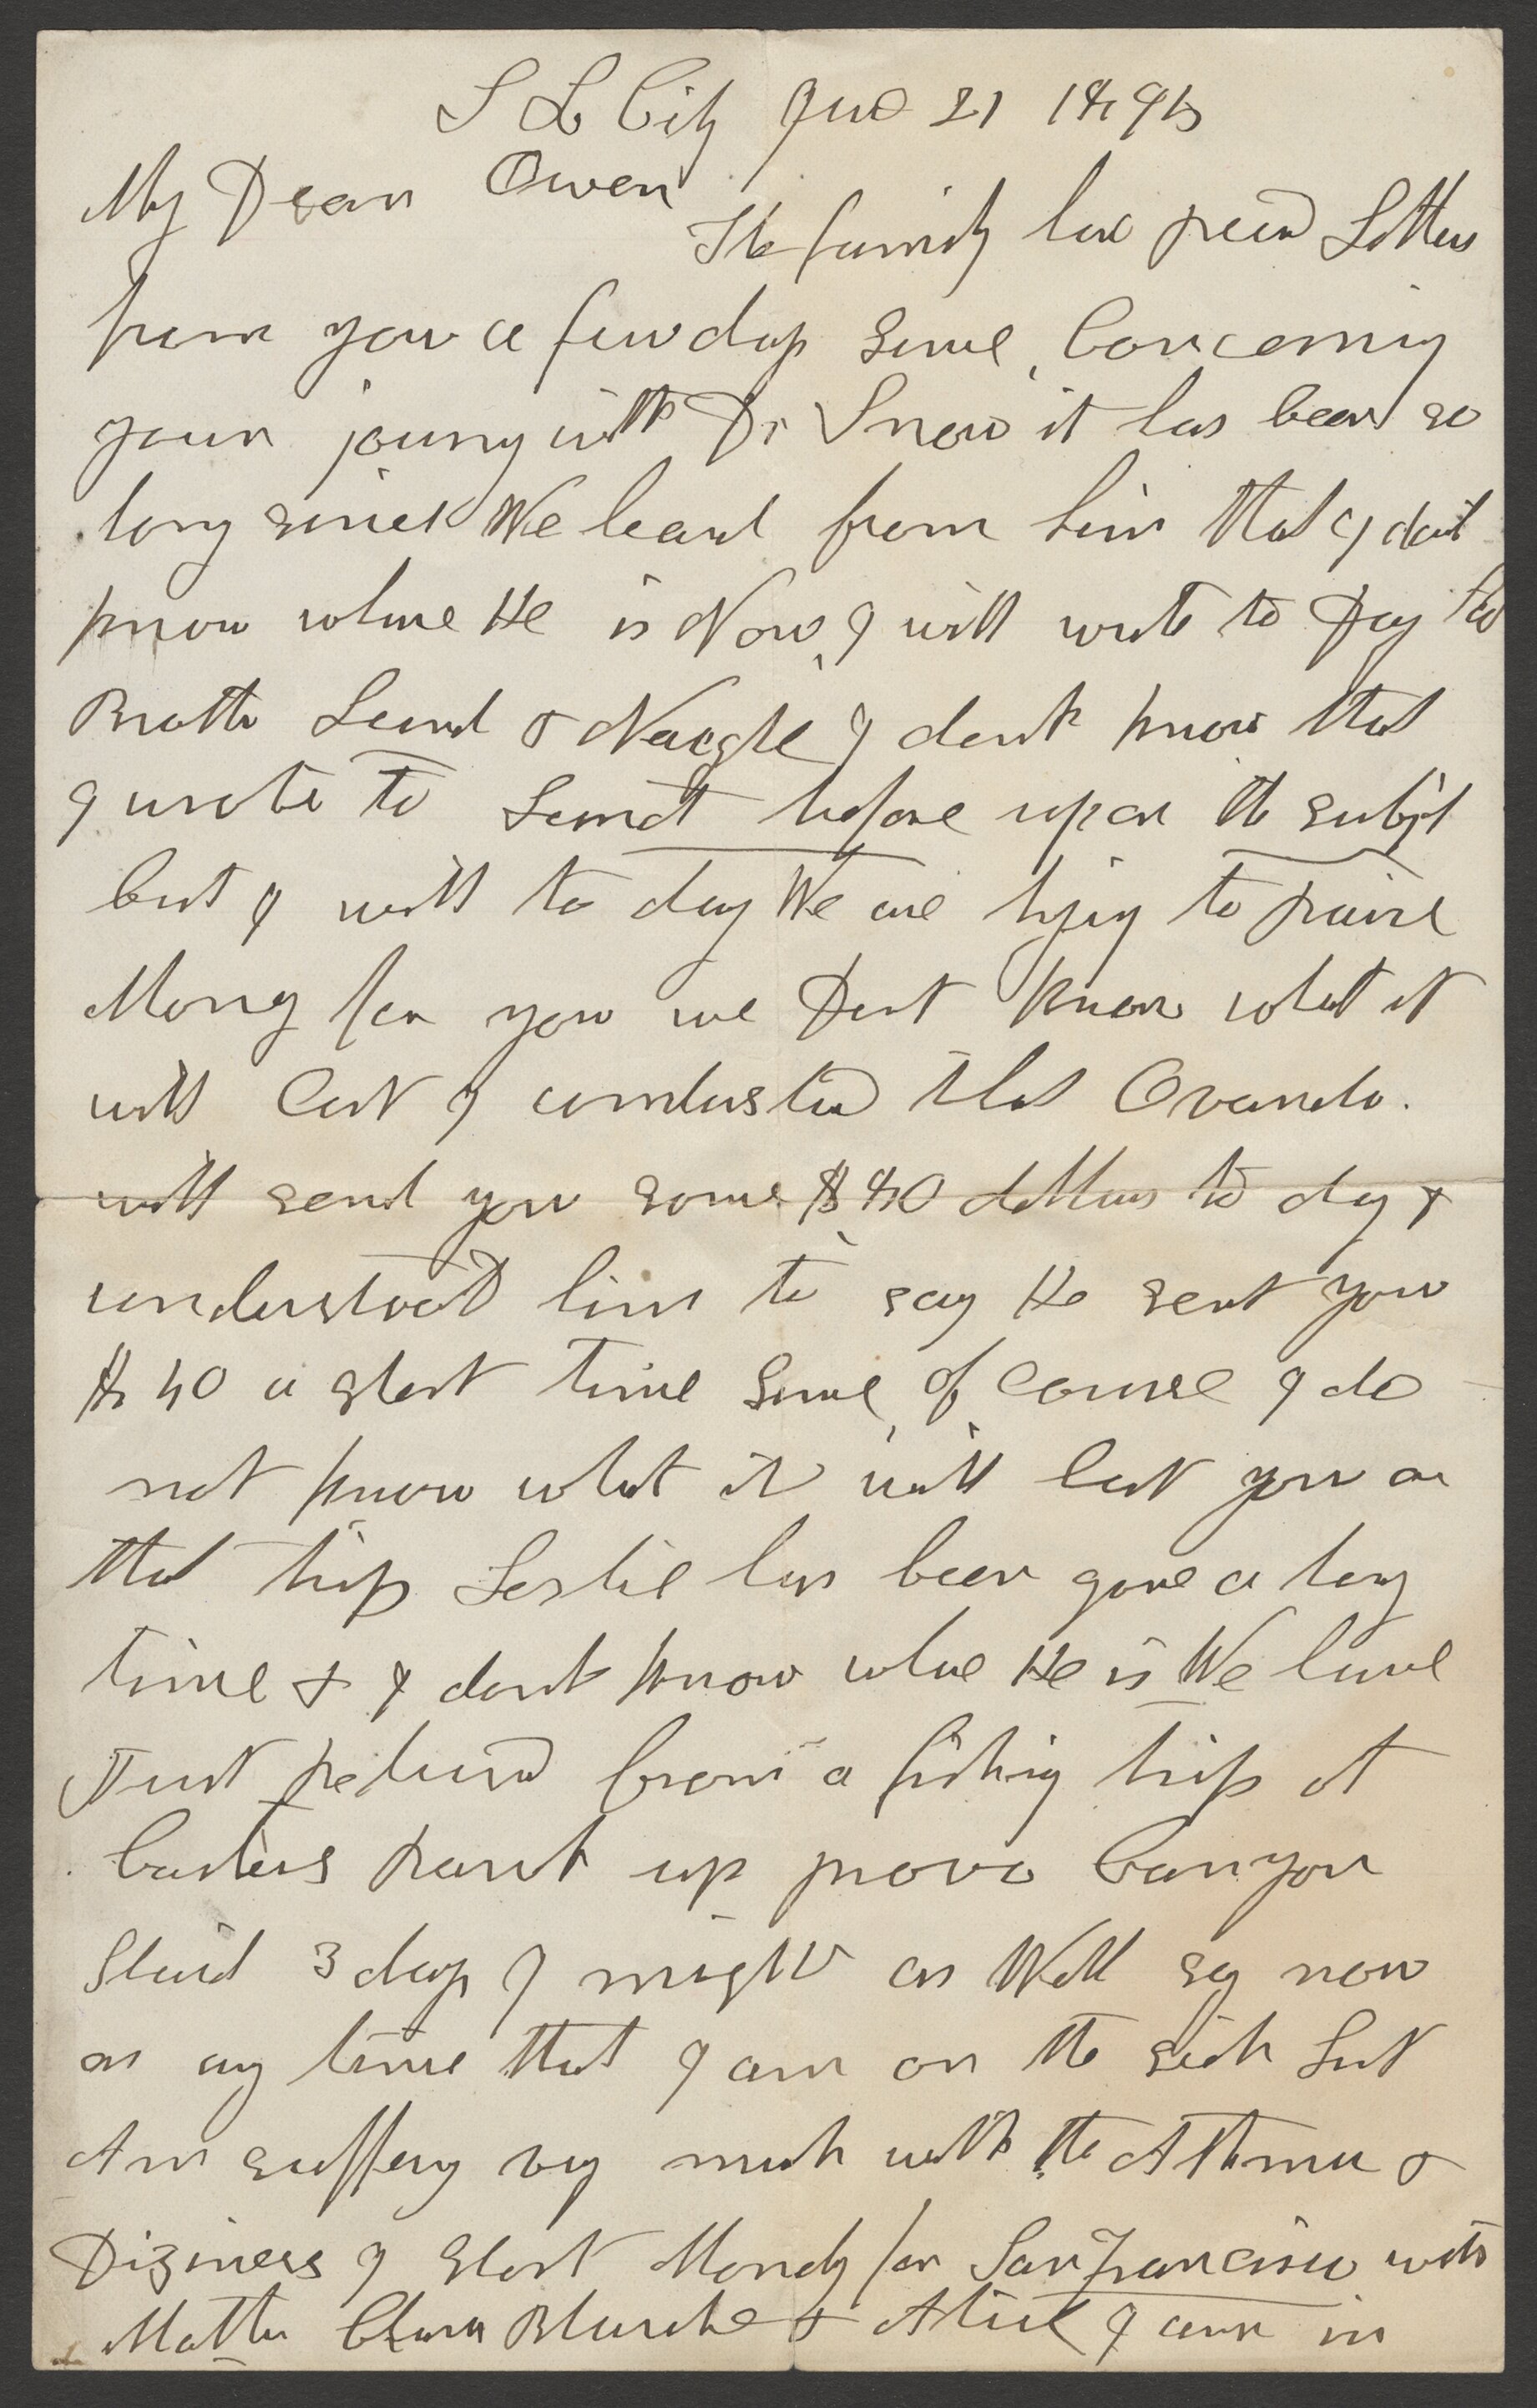 S L City June 21 1896
My Dear Owen
The family have recd Letters
from you a few days since, Concerning
your joung with Dr Snow it has been so
long since We heard from him that I dont
know where He is Now, I will write to Day to
Brother Lund & Naegle I dont know that
I wrote to Lund before upon the subjt
but I will to day We are trying to raise
Money for you we Dont know what it
will Cost I understood that Ovando.
will send you some $40 dollars to day &
understood him to say He sent you
$40 a short time since, of Course I do
not know what it will Cost you on
that trip Leslie has been gone a long
time & I dont know whre He is We have
Just returnd from a fishing trip at
up provo Canyon
Staid 3 days I might as Well say now
as any time that I am on the sick List
Am suffering very much with the Asthma &
Diziness I Start Mondy for San Francisco with
Mother Clara Blanche & Alice I am in